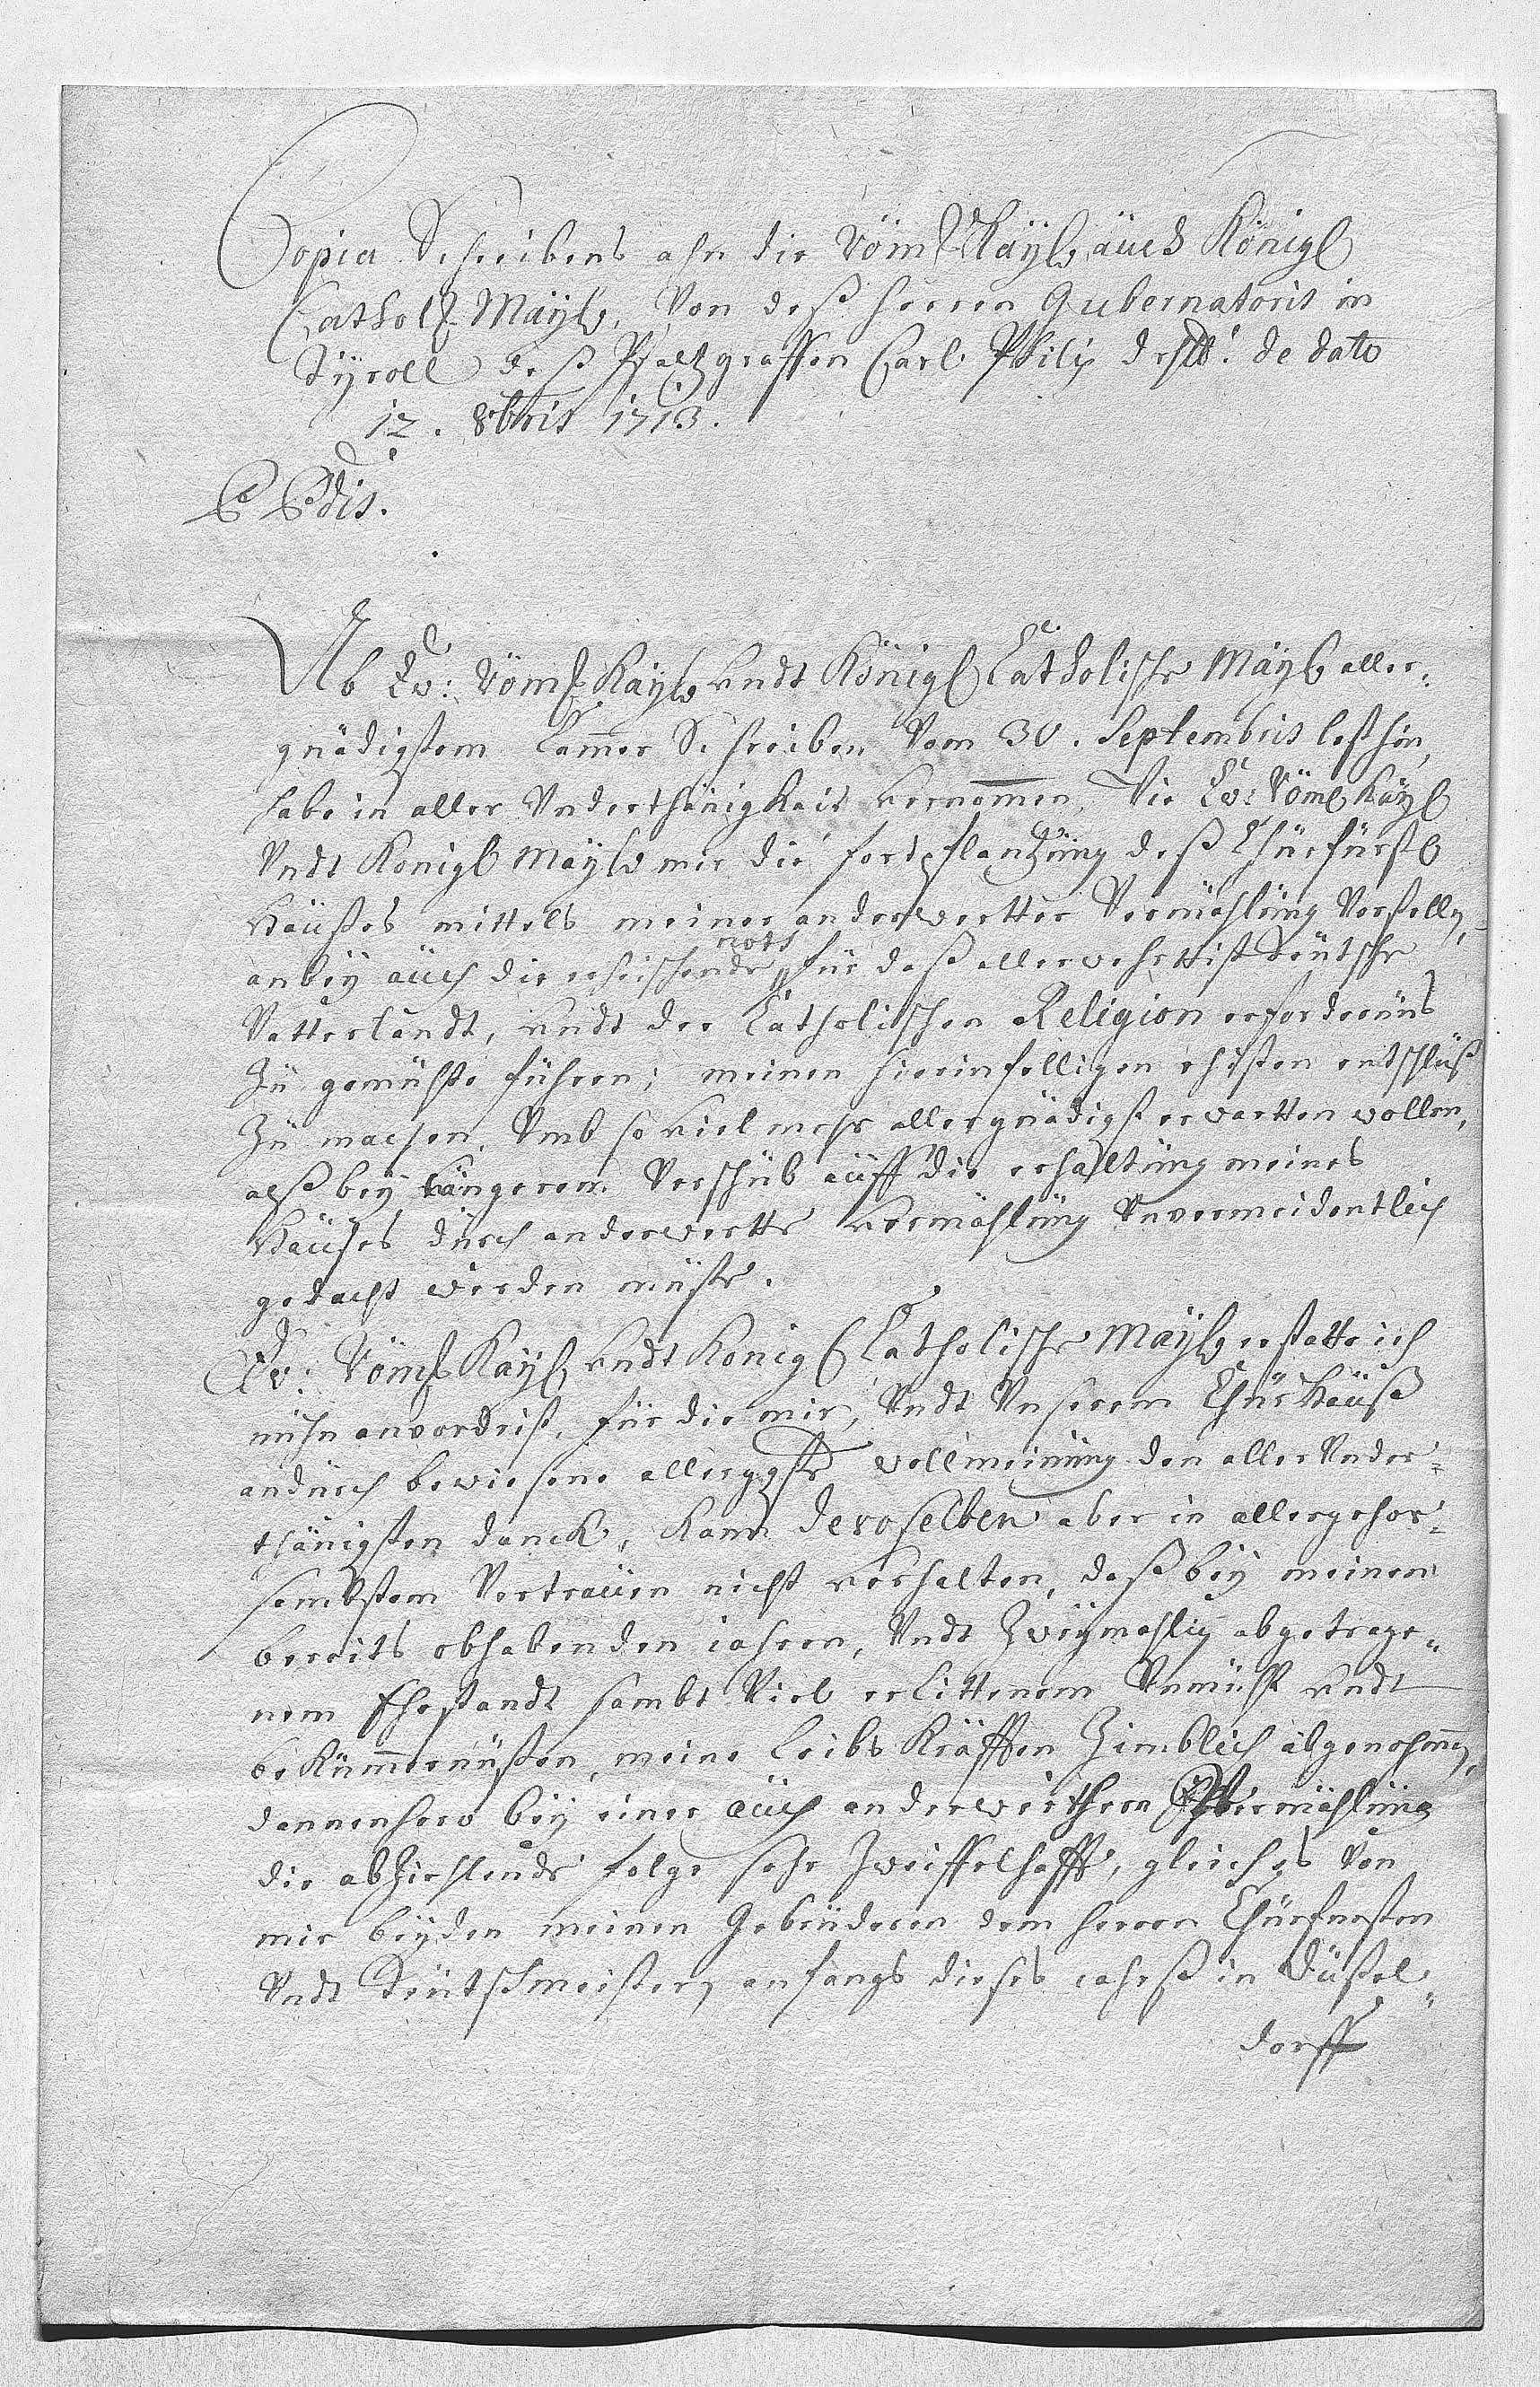 Copia Schreibens ahn die Röm. Kayl. auch Königl.
Cathol. Mayl. Von deß herren Gubernatoris in
Tÿroll deß Pfaltzgraffen Carl Philip dchlt: de dato
12. 8bris 1713.
P. Pdis.
Ab Ew: Röml. Kayl. undt Königl. Catholische Mayl. aller-
gnädigstem Cammer Schreiben Vom 30. Septembris lesthin,
habe in aller Underthänigkeit vernommen, Wie Ew: Röml. Kayl.
Undt Königl. Mayl. mir die fortpflantzung deß Churfürstl.
Haußes mittels meiner anderwertter Vermählung Vorstellen,
anbey auch die erheischende noth für daß allerwehrtist Teütsche
Vatterlandt, undt der Catholischen Religion erfordernus
Zu gemüthe führen; meinen hierinfelligen ehisten entschluß
Zu machen, Umb so viel mehr allergnädigst erwartten wollen,
alß bey längerem Verschub auff die erhaltung meines
Haußes durch anderwertte vermählung Unvermeidentlich
gedacht werden müste.
Ew: Röml. Kayl. undt Königl. Catholische Mayl. erstatte ich
nuhn anvordrist, für die mir, Undt Unserem Chur Hauß
andurch bewiesene allerggste wollmeinung den aller Under-
thänigsten danck, Kann deroselben aber in allergehor-
sambstem Vertrauen nicht verhalten, daß bey meinen
bereits obhabenden iahren, Undt Zweymahlig abgetrage-
nem Ehestandt sambt Viel erlittenem Unmuth undt
bekümmernußen, meine leibs Kräfften Zimblich abgenohmmen,
dannenhero bey einer auch anderwerthern Vermählung
die abZiehlende folge sehr Zweiffelhafft, gleich es Von
mir beyden meinen Gebrüderen dem herren Churfürsten
Undt Teutschmeistern anfangs dieses iahrß in Düßel-
dorff